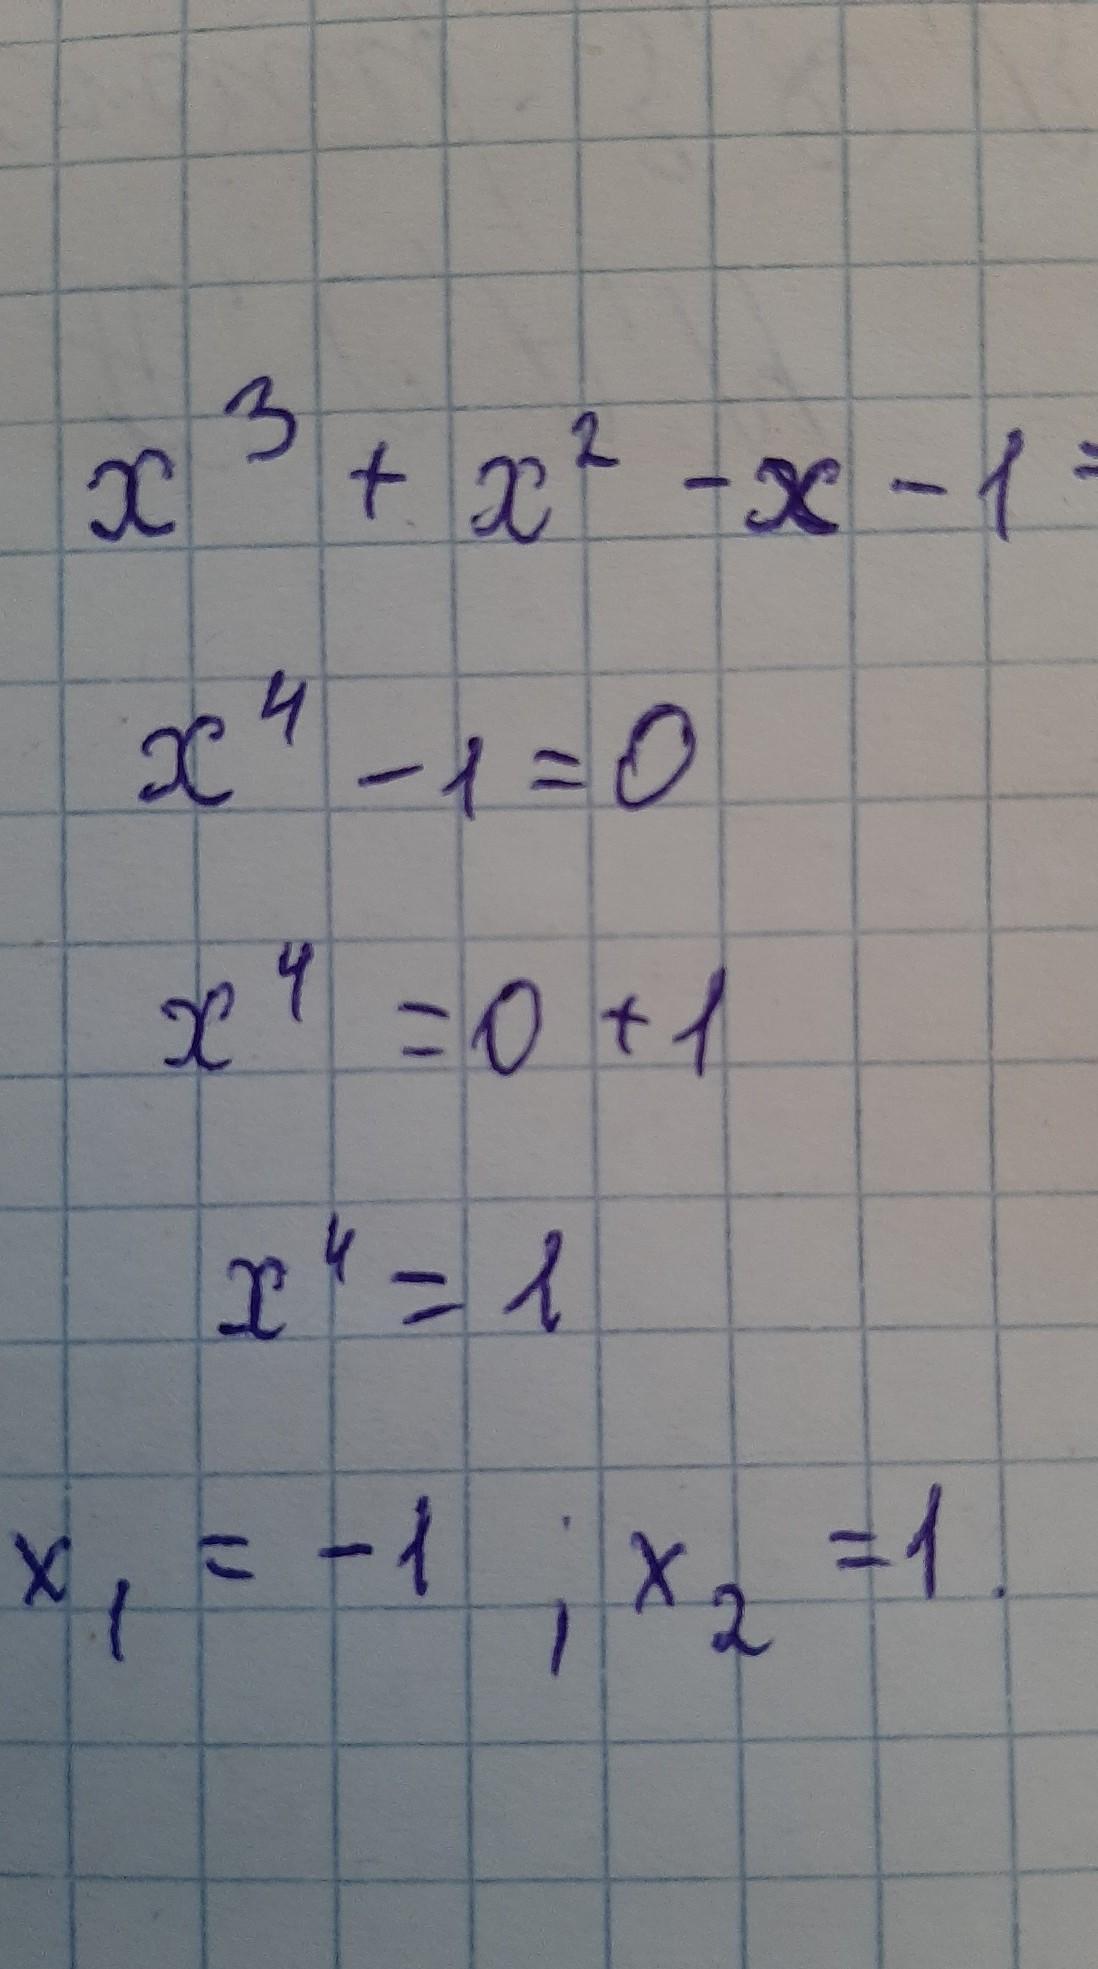 x³ + x² - x - 1 =
x⁴ - 1 = 0
x⁴ = 0 + 1
x⁴ = 1
x₁ = -1 ; x₂ = 1.